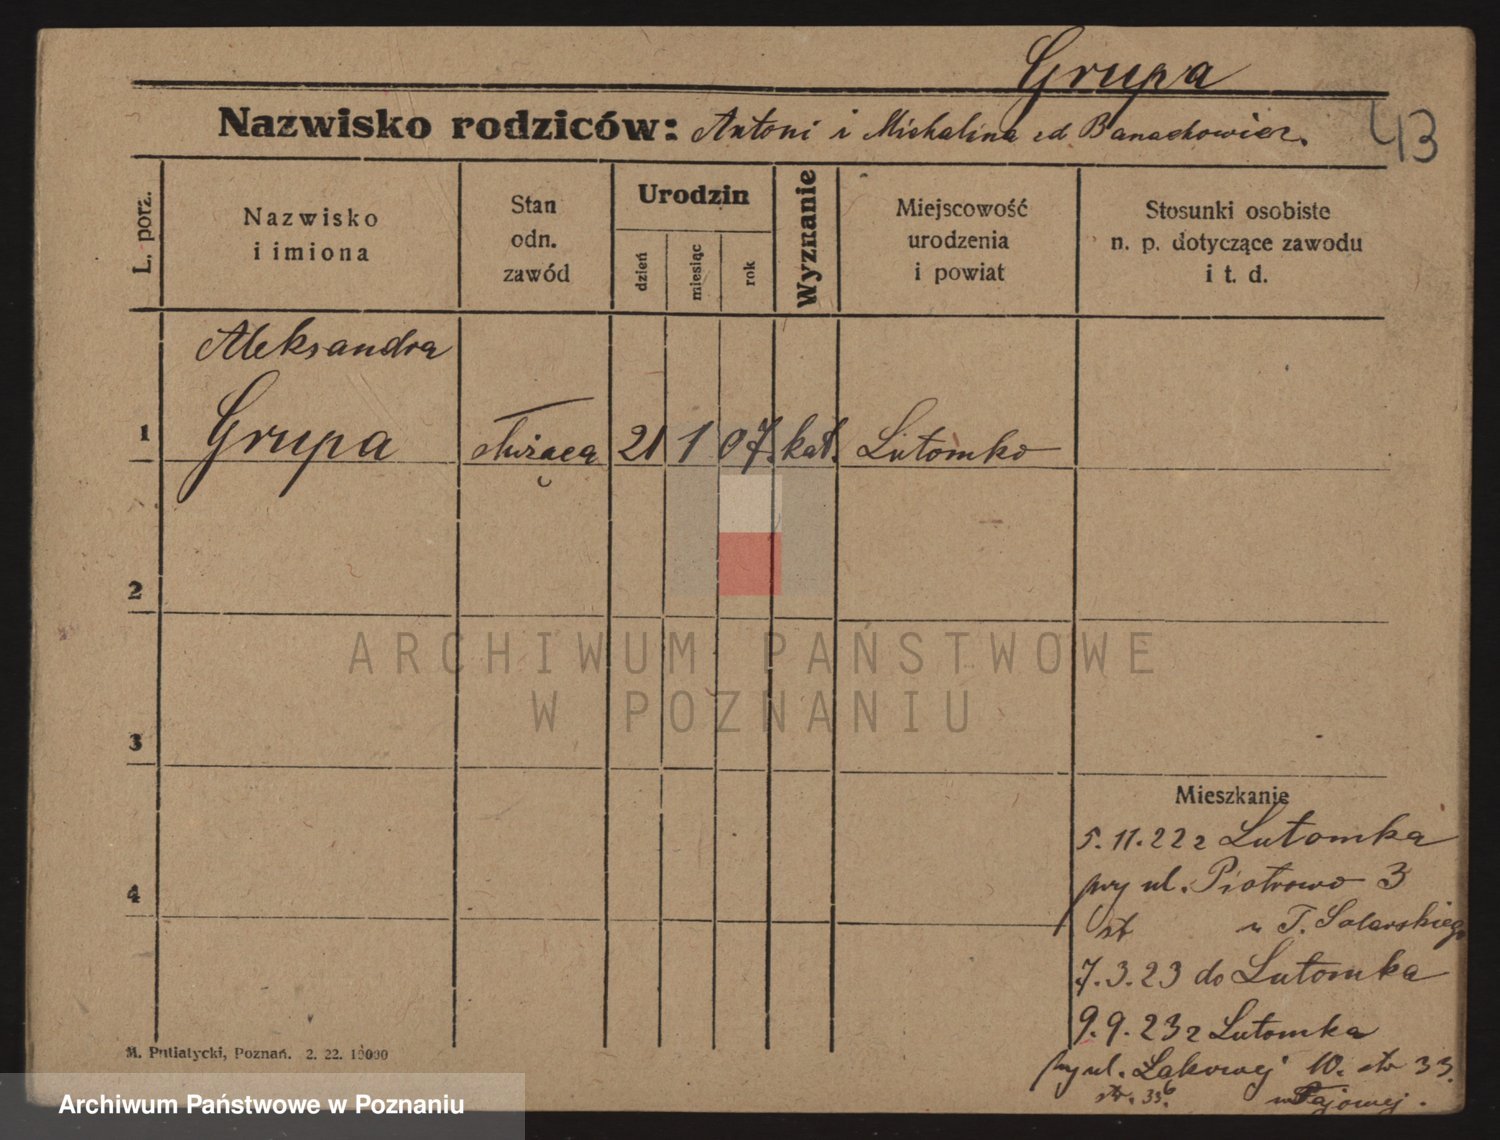 Grupa
43
Nazwisko rodziców: Antoni i Michalina zd Banachowicz.
L. porz.
Nazwisko
i imiona
Stan
odn.
zawód
Urodzin
dzień
miesiąc
rok
Wyznanie
Miejscowość
urodzenia
i powiat
Stosunki osobiste
n. p. dotyczące zawodu
i t. d.
Aleksandra
1 Grupa służąca 21 1 07. kat. Lutomko
2
3
4
ARCHIWUM PAŃSTWOWE
W POZNANIU
Mieszkanie
5.11.22 z Lutomka
przy ul. Piotrowo 3
u T. Solarskiego
7.3.23 do Lutomka
9.9.23 z Lutomka
przy ul. Łąkowej 10. str 33.
str. 33
M. Putiatycki, Poznań. 2. 22. 10000
Archiwum Państwowe w Poznaniu